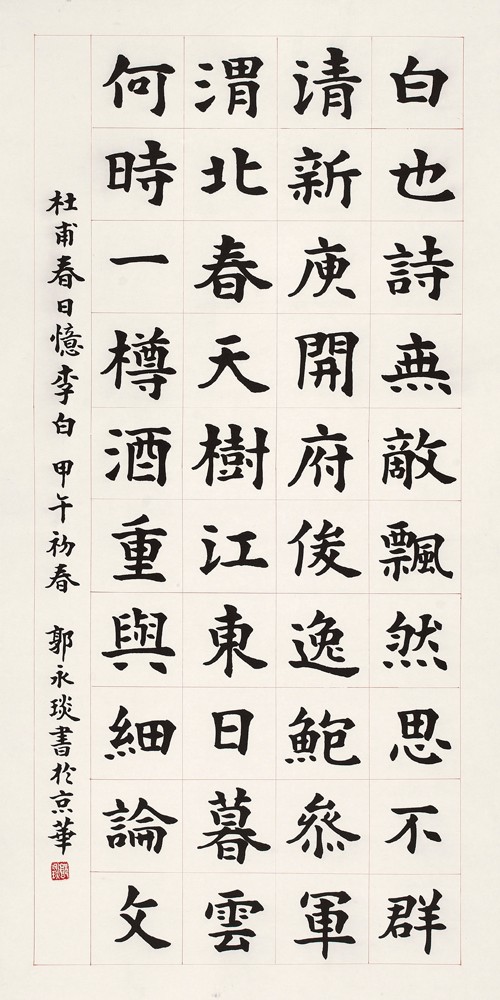 白也詩無敵飄然思不群
清新庾開府俊逸鮑參軍
渭北春天樹江東日暮雲
何時一樽酒重與細論文
杜甫春日憶李白 甲午初春 郭永琰書於京華